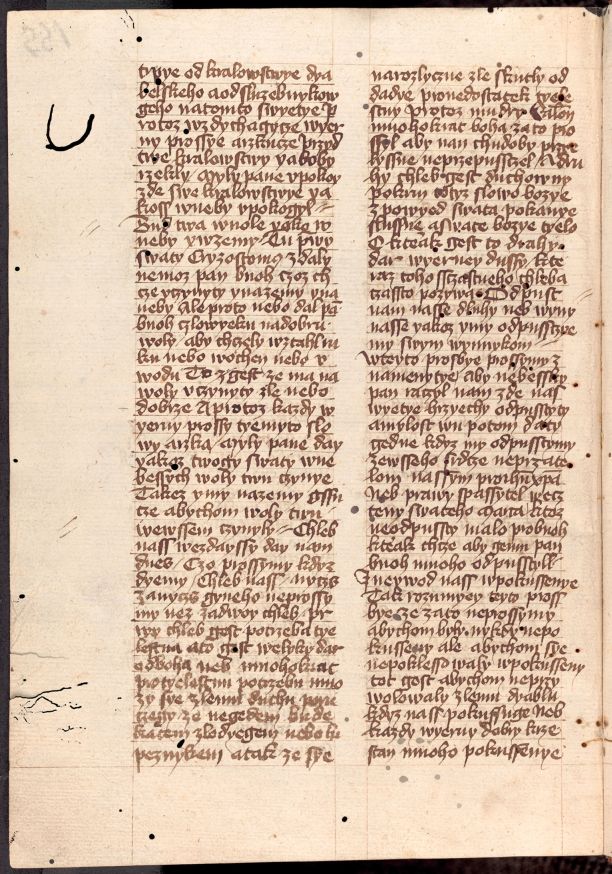 trpye od kralowstwye dya
belskeho a od sluzebnykow
geho na tomto swyetye P
rotoz wzdychagycze wyer
ny prossye arzkucze przyd
twe kralowstwy yakoby
rzekly Myly pane vpokoy
zde swe kralowstwye ya
koss w neby vpokogyl
Bud twa wuole yako w
neby y w zemy Tu prwy
swaty Cryzostomus zdaly
nemoz pan buoh czoz ch
cze vczynyty y na zemy y na
neby Ale proto nebo dal pan
buoh czlowyeku nadobru
woly aby chczely wztahl ru
ku nebo w ohen nebo v
wodu To zgest ze ma na
woly vczynyty zle nebo
dobrze A protoz kazdy w
yerny prossy tyemyto slo
wy arzka Myly pane day
yakoz twogy swaty w ne
besych woly twu czynye
Takez y my na zemy gssu
cze abychom woly twu
we wssem czynyly Chleb
nass wezdayssy day nam
dnes Czo prossymy kdyz
dyemy Chleb nass nyczs
zanyczs gyneho neprossy
my nez zadwoy chleb pr
wy chleb gest potrzeba tye
lestna a to gest welyky dar
od boha neb mnohokrat
pro tyelestnu potrzebu mno
zy sye zlemu duchu poru
czegy zo negeden bude
katem zlodyegem nebo ku
peznykem a tak ze sye
na rozlyczne zle skutky od
dadye pro nedostatek tyele
stny Protoz mudry Salon
mnohokrat boha za to pro
syl aby nan chudoby przye
lyssne neprzepusstyel A dru
hy chleb gest duchowny
pokrm totyz slowo bozye
zpowyed swata pokanye
slussne a swate bozye tyelo
O kterak gest to drahy
dar wyerney dussy kte
raz toho sszastneho chleba
czasto pozywa Odpust
nam nasse dluhy neb wyny
nasse yakoz y my odpusstye
my swym wynnykom
W teyto prosbye prossymy z
namenytye aby nebesky
pan raczyl nam zde nas
wyetye hrzyechy odpusstyty
a mylost wu potom daty
gedne kdyz my odpusstymy
ze wsseho srdcze neprzate
lom nassym pro ihu xpa
Neb prawy spassytel w ecz
teny swateho Mata ktoz
neodpussty malo pro buoh
kterak chcze aby gemu pan
buoh mnoho odpusstyl
I newod nass w pokussenye
Tak rozumyey teyto pros
bye ze zato neprossymy
abychom byly nykdy nepo
kusseny ale abychom sye
nepoklessowaly w pokusseny
toc gest abychom neprzy
wolowaly zlemu dyablu
kdyz nass pokussuge Neb
kazdy wyerny dobry krze
stan mnoho pokussenye